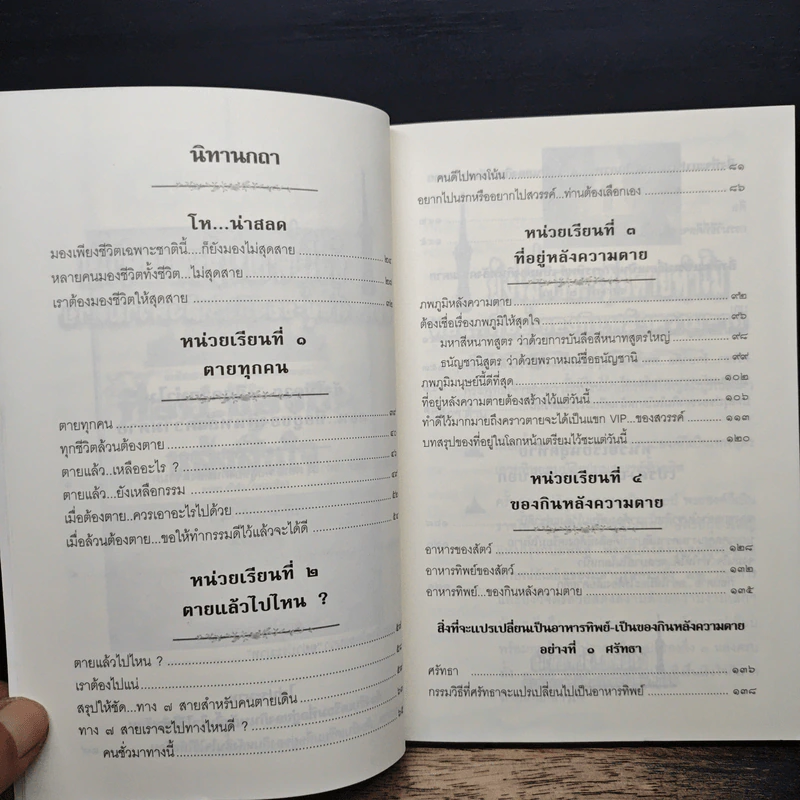 นิทานกถา
โห...น่าสลด
มองเพียงชีวิตเฉพาะชาตินี้....ก็ยังมองไม่สุดสาย
หลายคนมองชีวิตทั้งชีวิต...ไม่สุดสาย
เราต้องมองชีวิตให้สุดสาย
หน่วยเรียนที่ ๑
ตายทุกคน
ตายทุกคน
ทุกชีวิตล้วนต้องตาย
ตายแล้ว..เหลืออะไร ?
ตายแล้ว..ยังเหลือกรรม
เมื่อต้องตาย..ควรเอาอะไรไปด้วย
เมื่อล้วนต้องตาย...ขอให้ทำกรรมดีไว้แล้วจะได้ดี
หน่วยเรียนที่ ๒
ตายแล้วไปไหน ?
ตายแล้วไปไหน ?
เราต้องไปแน่
สรุปให้ชัด...ทาง ๗ สายสำหรับคนตายเดิน
ทาง ๗ สายเราจะไปทางไหนดี ?
คนชั่วมาทางนี้
คนดีไปทางโน้น ๘๑
อยากไปนรกหรืออยากไปสวรรค์...ท่านต้องเลือกเอง ๘๖
หน่วยเรียนที่ ๓
ที่อยู่หลังความตาย
ภพภูมิหลังความตาย ๙๒
ต้องเชื่อเรื่องภพภูมิให้สุดใจ ๙๖
มหาสีหนาทสูตร ว่าด้วยการบันลือสีหนาทสูตรใหญ่ ๙๘
ธนัญชานิสูตร ว่าด้วยพราหมณ์ชื่อธนัญชานิ ๙๙
ภพภูมิมนุษย์นี้ดีที่สุด ๑๐๒
ที่อยู่หลังความตายต้องสร้างไว้แต่วันนี้ ๑๐๖
ทำดีไว้มากมายถึงคราวตายจะได้เป็นแขก VIP...ของสวรรค์ ๑๑๓
บทสรุปของที่อยู่ในโลกหน้าเตรียมไว้ซะแต่วันนี้ ๑๒๐
หน่วยเรียนที่ ๔
ของกินหลังความตาย
อาหารของสัตว์ ๑๒๘
อาหารทิพย์ของสัตว์ ๑๓๒
อาหารทิพย์...ของกินหลังความตาย ๑๓๕
สิ่งที่จะแปรเปลี่ยนเป็นอาหารทิพย์-เป็นของกินหลังความตาย
อย่างที่ ๑ ศรัทธา
ศรัทธา ๑๓๖
กรรมวิธีที่ศรัทธาจะแปรเปลี่ยนไปเป็นอาหารทิพย์ ๑๓๘